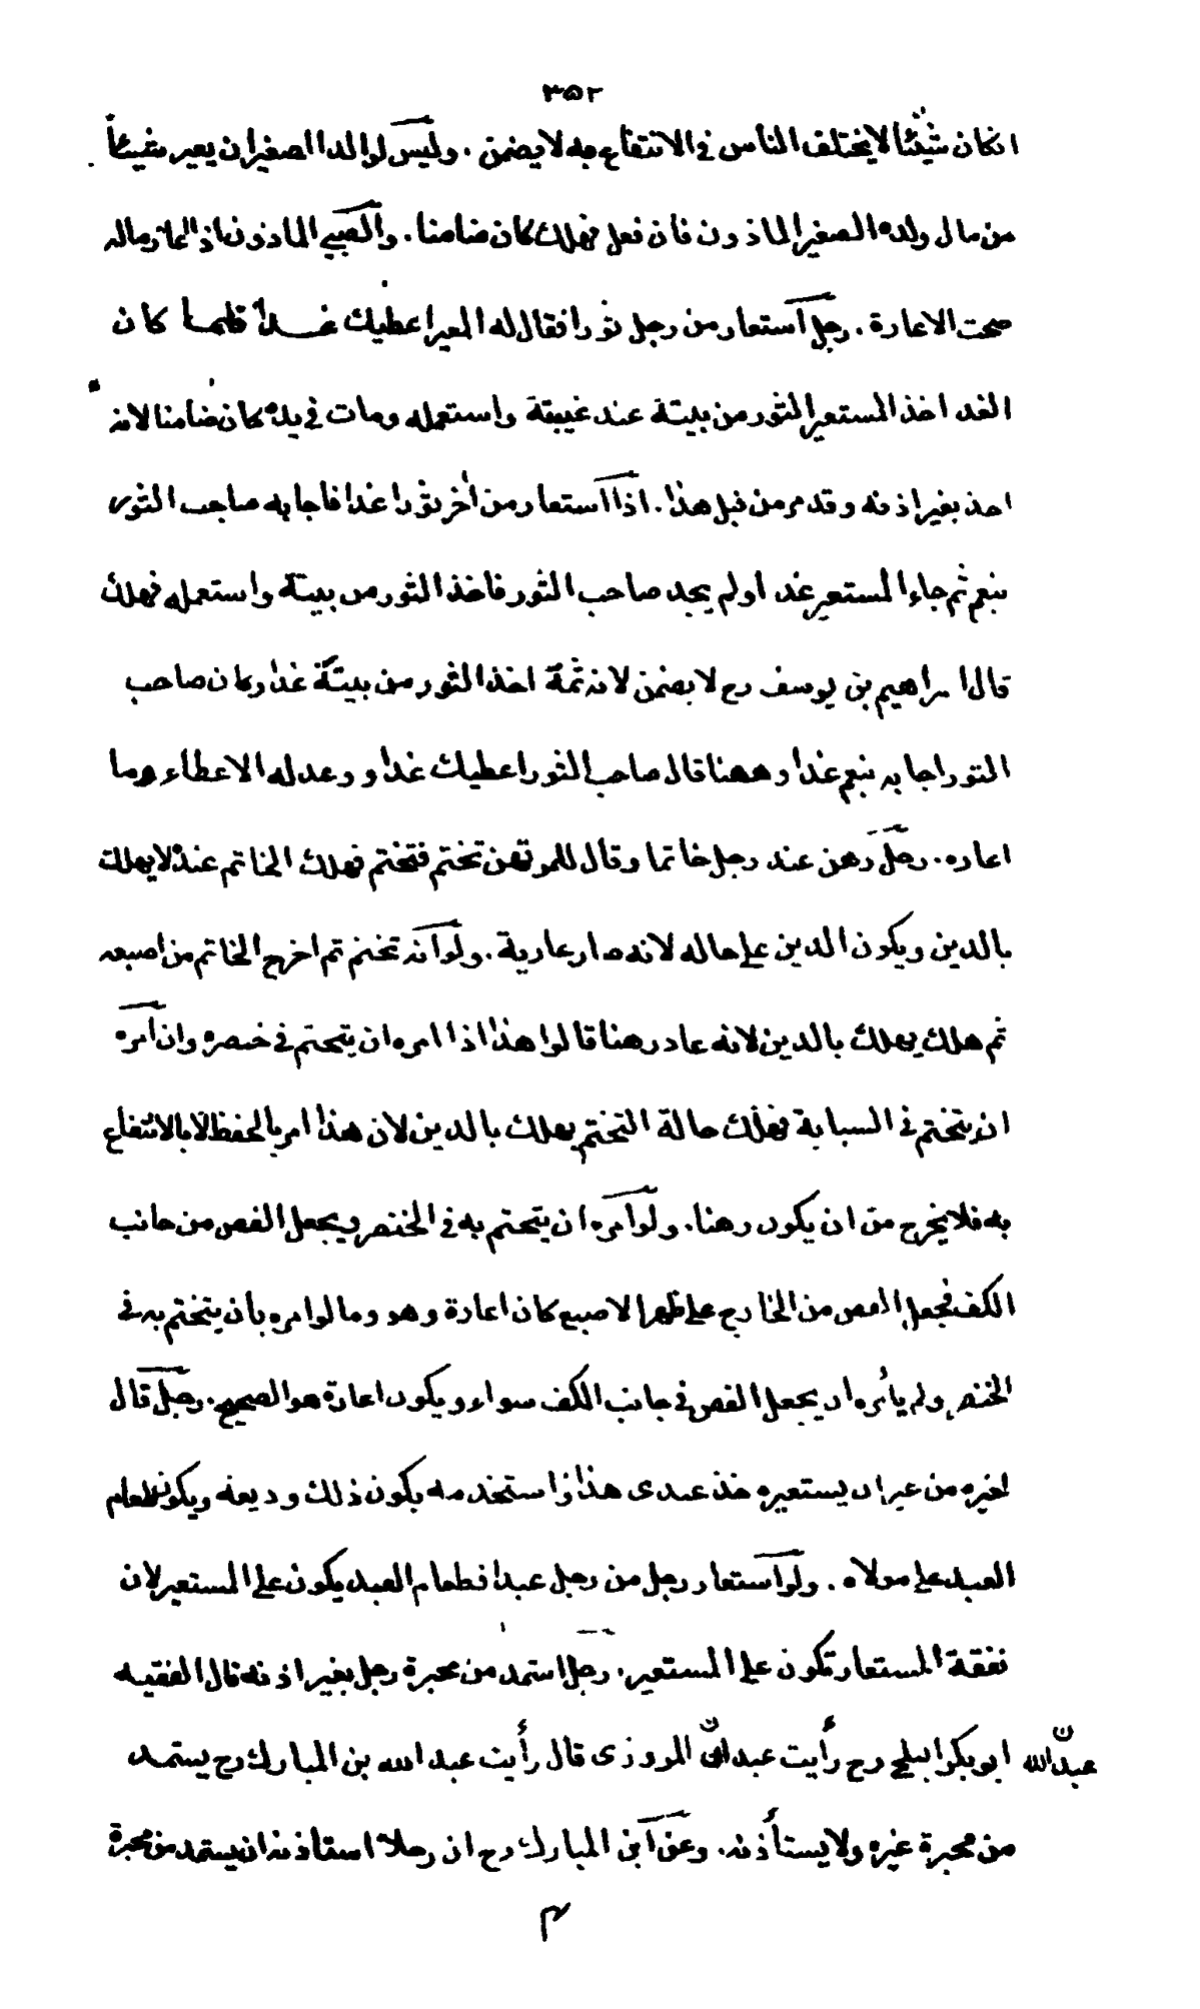 ٣٥٢
انكان شيئا لا يختلف الناس في الانتفاع به لا يضمن . وليس لوالد الصغير ان يعير شيئاً
من مال ولده الصغير الماذون فان فعل فهلك كان ضامنا . والصبي الماذون اذا اعار ماله
صحت الاعارة . رجل استعار من رجل ثورا فقال له المعير اعطيك غداً فلما كان
الغد اخذ المستعير الثور من بيته عند غيبته واستعمله ومات في يده كان ضامنا لانه
اخذ بغير اذنه وقد مر من قبل هذا . اذا استعار من اٰخر ثورا غدا فاجابه صاحب الثور
بنعم ثم جاء المستعير غدا ولم يجد صاحب الثور فاخذ الثور من بيته واستعمله فهلك
قال ابراهيم بن يوسف رح لا يضمن لانه ثمة اخذ الثور من بيته غدا وكان صاحب
الثور اجابه بنعم غدا وههنا قال صاحب الثور اعطيك غدا و وعد له الاعطاء وما
اعاره . رجل رهن عند رجل خاتما وقال للمرتهن تختم فتختم فهلك الخاتم عنده لا يهلك
بالدين ويكون الدين على حاله لانه صار عارية . ولو انه تختم ثم اخرج الخاتم من اصبعه
ثم هلك يهلك بالدين لانه عاد رهنا قالوا هذا اذا امره ان يتختم في خنصره وان امره
ان يتختم في السبابة فهلك حالة التختم يهلك بالدين لان هذا امر بالحفظ لا بالانتفاع
به فلا يخرج من ان يكون رهنا . ولو امره ان يتختم به في الخنصر ويجعل الفص من جانب
الكف فجعل الفص من الخارج على ظهر الاصبع كان اعارة وهو وما لو امره بان يتختم به في
الخنصر ولم يأمره ان يجعل الفص في جانب الكف سواء ويكون اعارة هو الصحيح . رجل قال
لغيره من غير ان يستعيره خذ عبدى هذا واستخدمه يكون ذلك وديعة ويكون طعام
العبد على مولاه . ولو استعار رجل من رجل عبدا فطعام العبد يكون على المستعير لان
نفقة المستعار تكون على المستعير . رجل استمد من محبرة رجل بغير اذنه قال الفقيه
ابو بكر البلخي رح رأيت عبدان المروزى قال رأيت عبد الله بن المبارك رح يستمد
عبد الله
من محبرة غيره ولا يستأذنه . وعن ابن المبارك رح ان رجلا استاذنه ان يستمد من محبرة